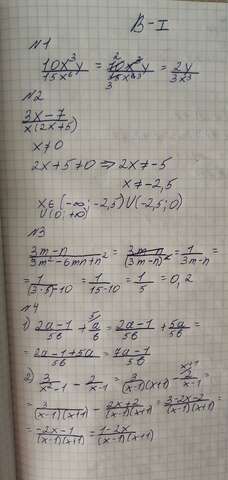 В-I
№1
10x³y/15x⁶ = 10x³y/15x⁶ = 2y/3x³
№2
3x-7/x(2x+5)
x≠0
2x+5≠0 ⇒ 2x≠-5
x≠-2,5
x∈(-∞;-2,5)∪(-2,5;0)
∪(0;+∞)
№3
3m-n/3m²-6mn+n² = 3m-n/(3m-n)² = 1/3m-n =
= 1/(3·5)-10 = 1/15-10 = 1/5 = 0,2
№4
1) 2a-1/5b + a/b = 2a-1/5b + 5a/5b =
= 2a-1+5a/5b = 7a-1/5b
2) 3/x²-1 - 2/x-1 = 3/(x-1)(x+1) - 2/x-1 =
= 3/(x-1)(x+1) - 2x+2/(x-1)(x+1) = 3-2x-2/(x-1)(x+1) =
= -2x-1/(x-1)(x+1) = 1-2x/(x-1)(x+1)